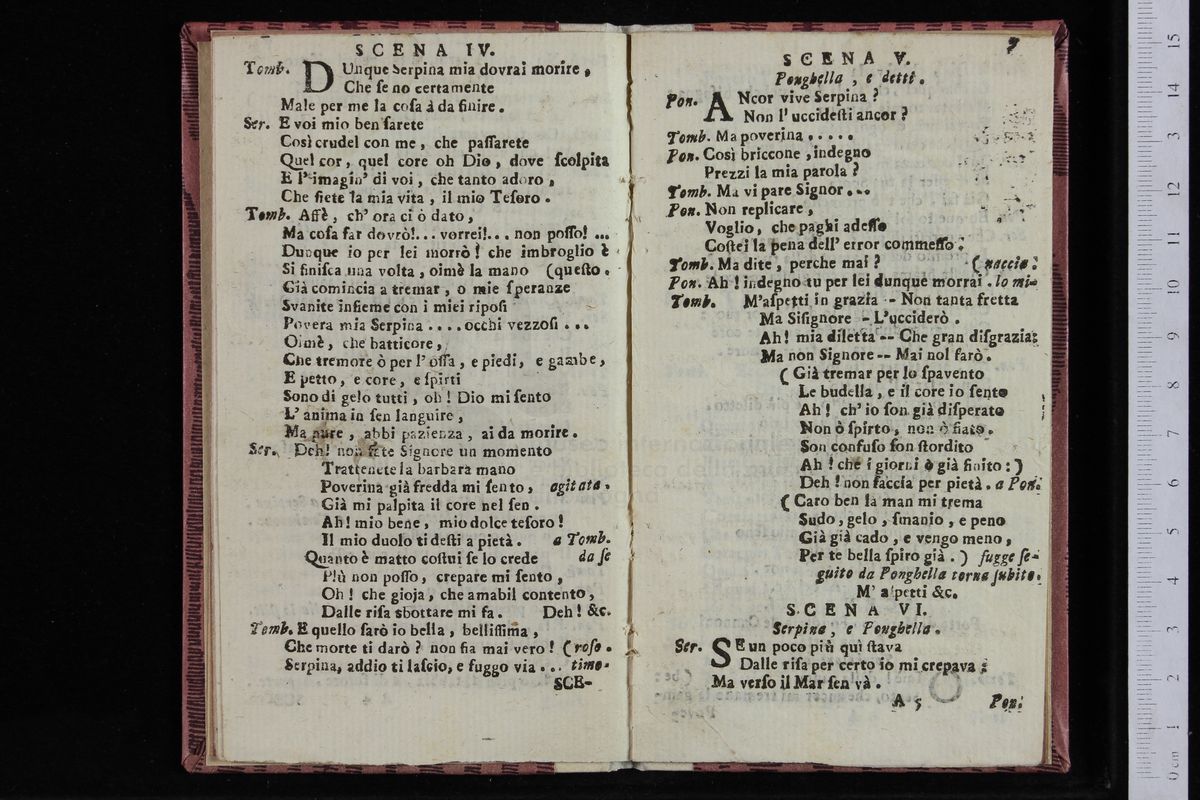 SCENA IV.
Tomb. DUnque Serpina mia dovrai morire,
Che se no certamente
Male per me la cosa à da finire.
Ser. E voi mio ben sarete
Così crudel con me, che passarete
Quel cor, quel core oh Dio, dove scolpita
E l'imagin' di voi, che tanto adoro,
Che siete la mia vita, il mio Tesoro.
Tomb. Affè, ch' ora ci ò dato,
Ma cosa far dovrò!... vorrei!... non posso! ...
Dunque io per lei morrò! che imbroglio è
Si finisca una volta, oimè la mano (questo.
Già comincia a tremar, o mie speranze
Svanite insieme con i miei riposi
Povera mia Serpina .... occhi vezzosi ...
Oimè, che batticore,
Che tremore ò per l' ossa, e piedi, e gambe,
E petto, e core, e spirti
Sono di gelo tutti, oh! Dio mi sento
L' anima in sen languire,
Ma pure, abbi pazienza, ai da morire.
Ser. Deh! non fate Signore un momento
Trattenete la barbara mano
Poverina già fredda mi sento, agitata.
Già mi palpita il core nel sen.
Ah! mio bene, mio dolce tesoro!
Il mio duolo ti desti a pietà. a Tomb.
Quanto è matto costui se lo crede da se
Più non posso, crepare mi sento,
Oh! che gioja, che amabil contento,
Dalle risa sbottare mi fa. Deh! &c.
Tomb. E quello farò io bella, bellissima,
Che morte ti darò? non fia mai vero! (roso.
Serpina, addio ti lascio, e fuggo via ... timo-
SCE-
7
SCENA V.
Ponghella, e detti.
Pon. ANcor vive Serpina?
Non l' uccidesti ancor?
Tomb. Ma poverina .....
Pon. Così briccone, indegno
Prezzi la mia parola?
Tomb. Ma vi pare Signor...
Pon. Non replicare,
Voglio, che paghi adesso
Costei la pena dell' error commesso.
Tomb. Ma dite, perche mai? (naccia.
Pon. Ah! indegno tu per lei dunque morrai. lo mi-
Tomb. M'aspetti in grazia -- Non tanta fretta
Ma Sisignore -- L'ucciderò.
Ah! mia diletta -- Che gran disgrazia:
Ma non Signore -- Mai nol farò.
(Già tremar per lo spavento
Le budella, e il core io sento
Ah! ch' io son già disperato
Non ò spirto, non ò fiato.
Son confuso son stordito
Ah! che i giorni ò già finito:)
Deh! non faccia per pietà. a Pon.
(Caro ben la man mi trema
Sudo, gelo, smanio, e peno
Già già cado, e vengo meno,
Per te bella spiro già.) fugge se-
guito da Ponghella torna subito.
M' aspetti &c.
SCENA VI.
Serpina, e Ponghella.
Ser. SE un poco più quì stava
Dalle risa per certo io mi crepava;
Ma verso il Mar sen và.
A 5 Pon.